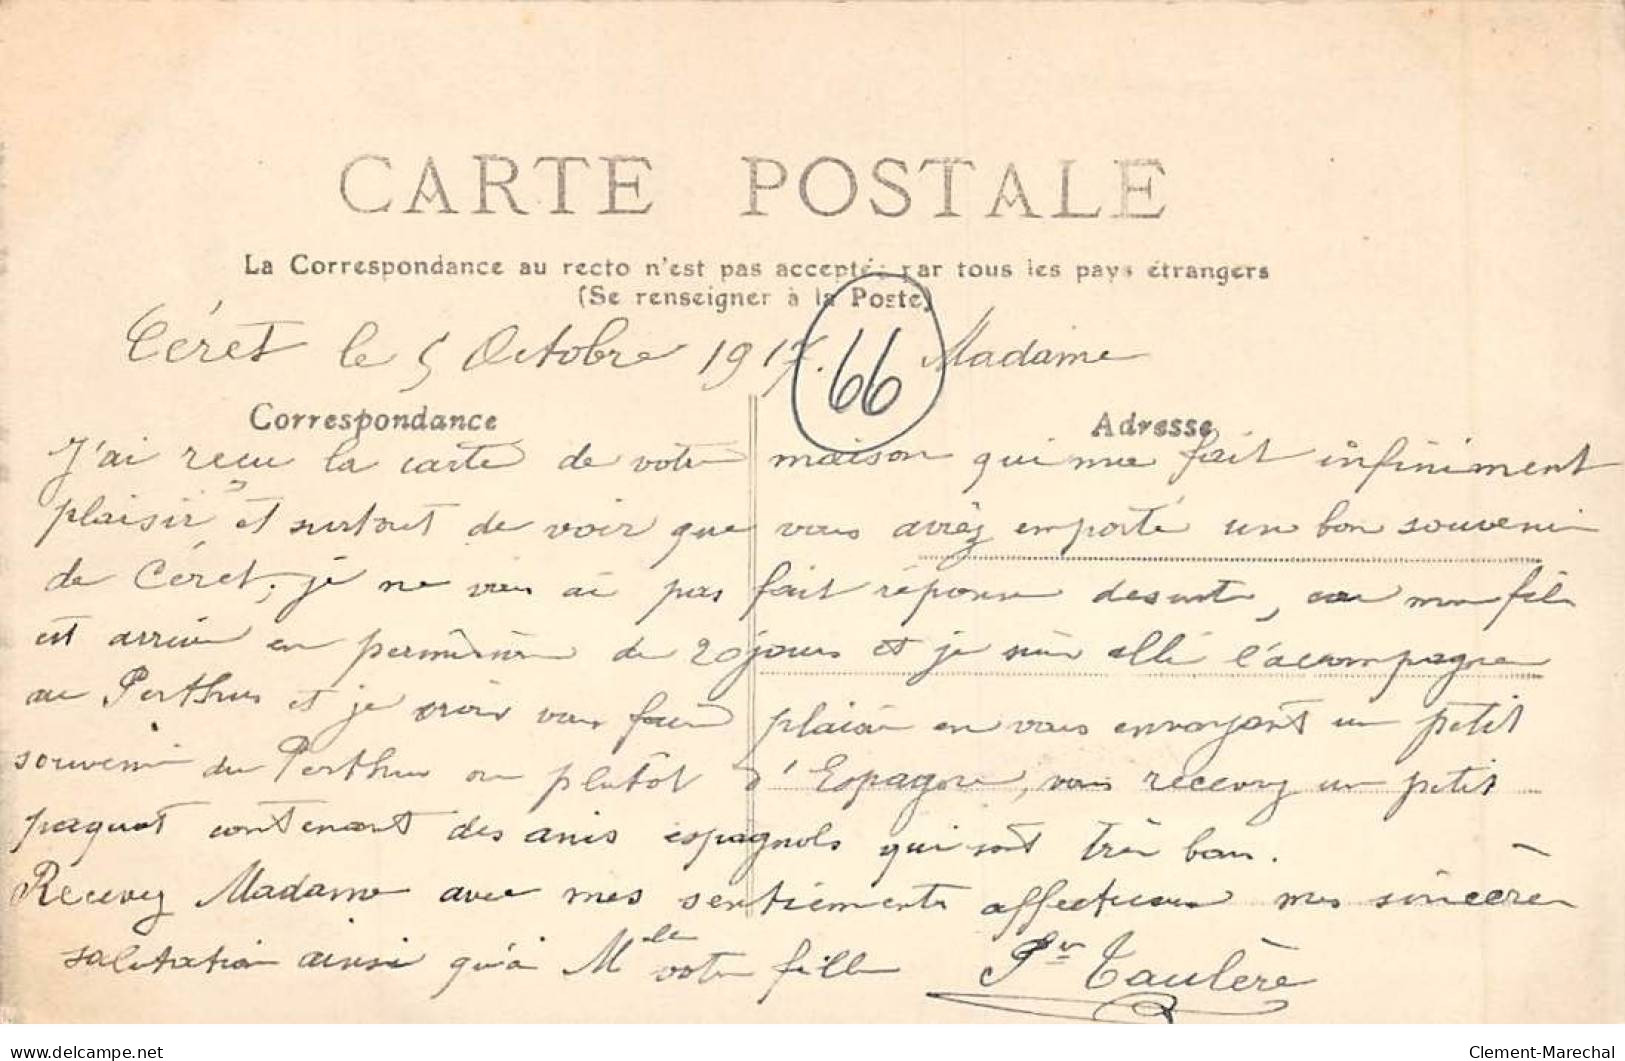 CARTE POSTALE
La Correspondance au recto n'est pas acceptée par tous les pays étrangers
(Se renseigner à la Poste)
Céret le 5 Octobre 1917. 66 Madame
Correspondance Adresse
J'ai recu la carte de votre maison qui me fait infiniment
plaisir et surtout de voir que vous aviez emporté un bon souvenir
de Céret, je ne vous ai pas fait réponse desuite, car mon fils
est arrivé en permission de 20 jours et je suis allé l'acompagner
au Perthus et je crois vous faire plaisir en vous envoyant un petit
souvenir du Perthus ou plutôt d'Espagne, vous recevez un petit
paquet contenant des anis espagnols qui sont très bons.
Recevez Madame avec mes sentiements affectueux mes sincères
salutation ainsi qu'à Mlle votre fille Taulère
delcampe.net Clement-Marechal